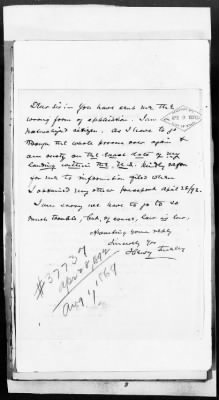 Dear Sir in You have sent me the
wrong form of application. I am
naturalized citizen. As I have to go
through the whole process over again &
am rusty on the exact date of my
landing within the U.S. kindly refer
for me to information filed when
I obtained my other passport April 28/92.
I am sorry we have to go to so
much trouble, but, of course, law is law.
Awaiting your reply
Sincerely Yrs
Henry
#37737
Apr 28, 892
Aug 4, 1869